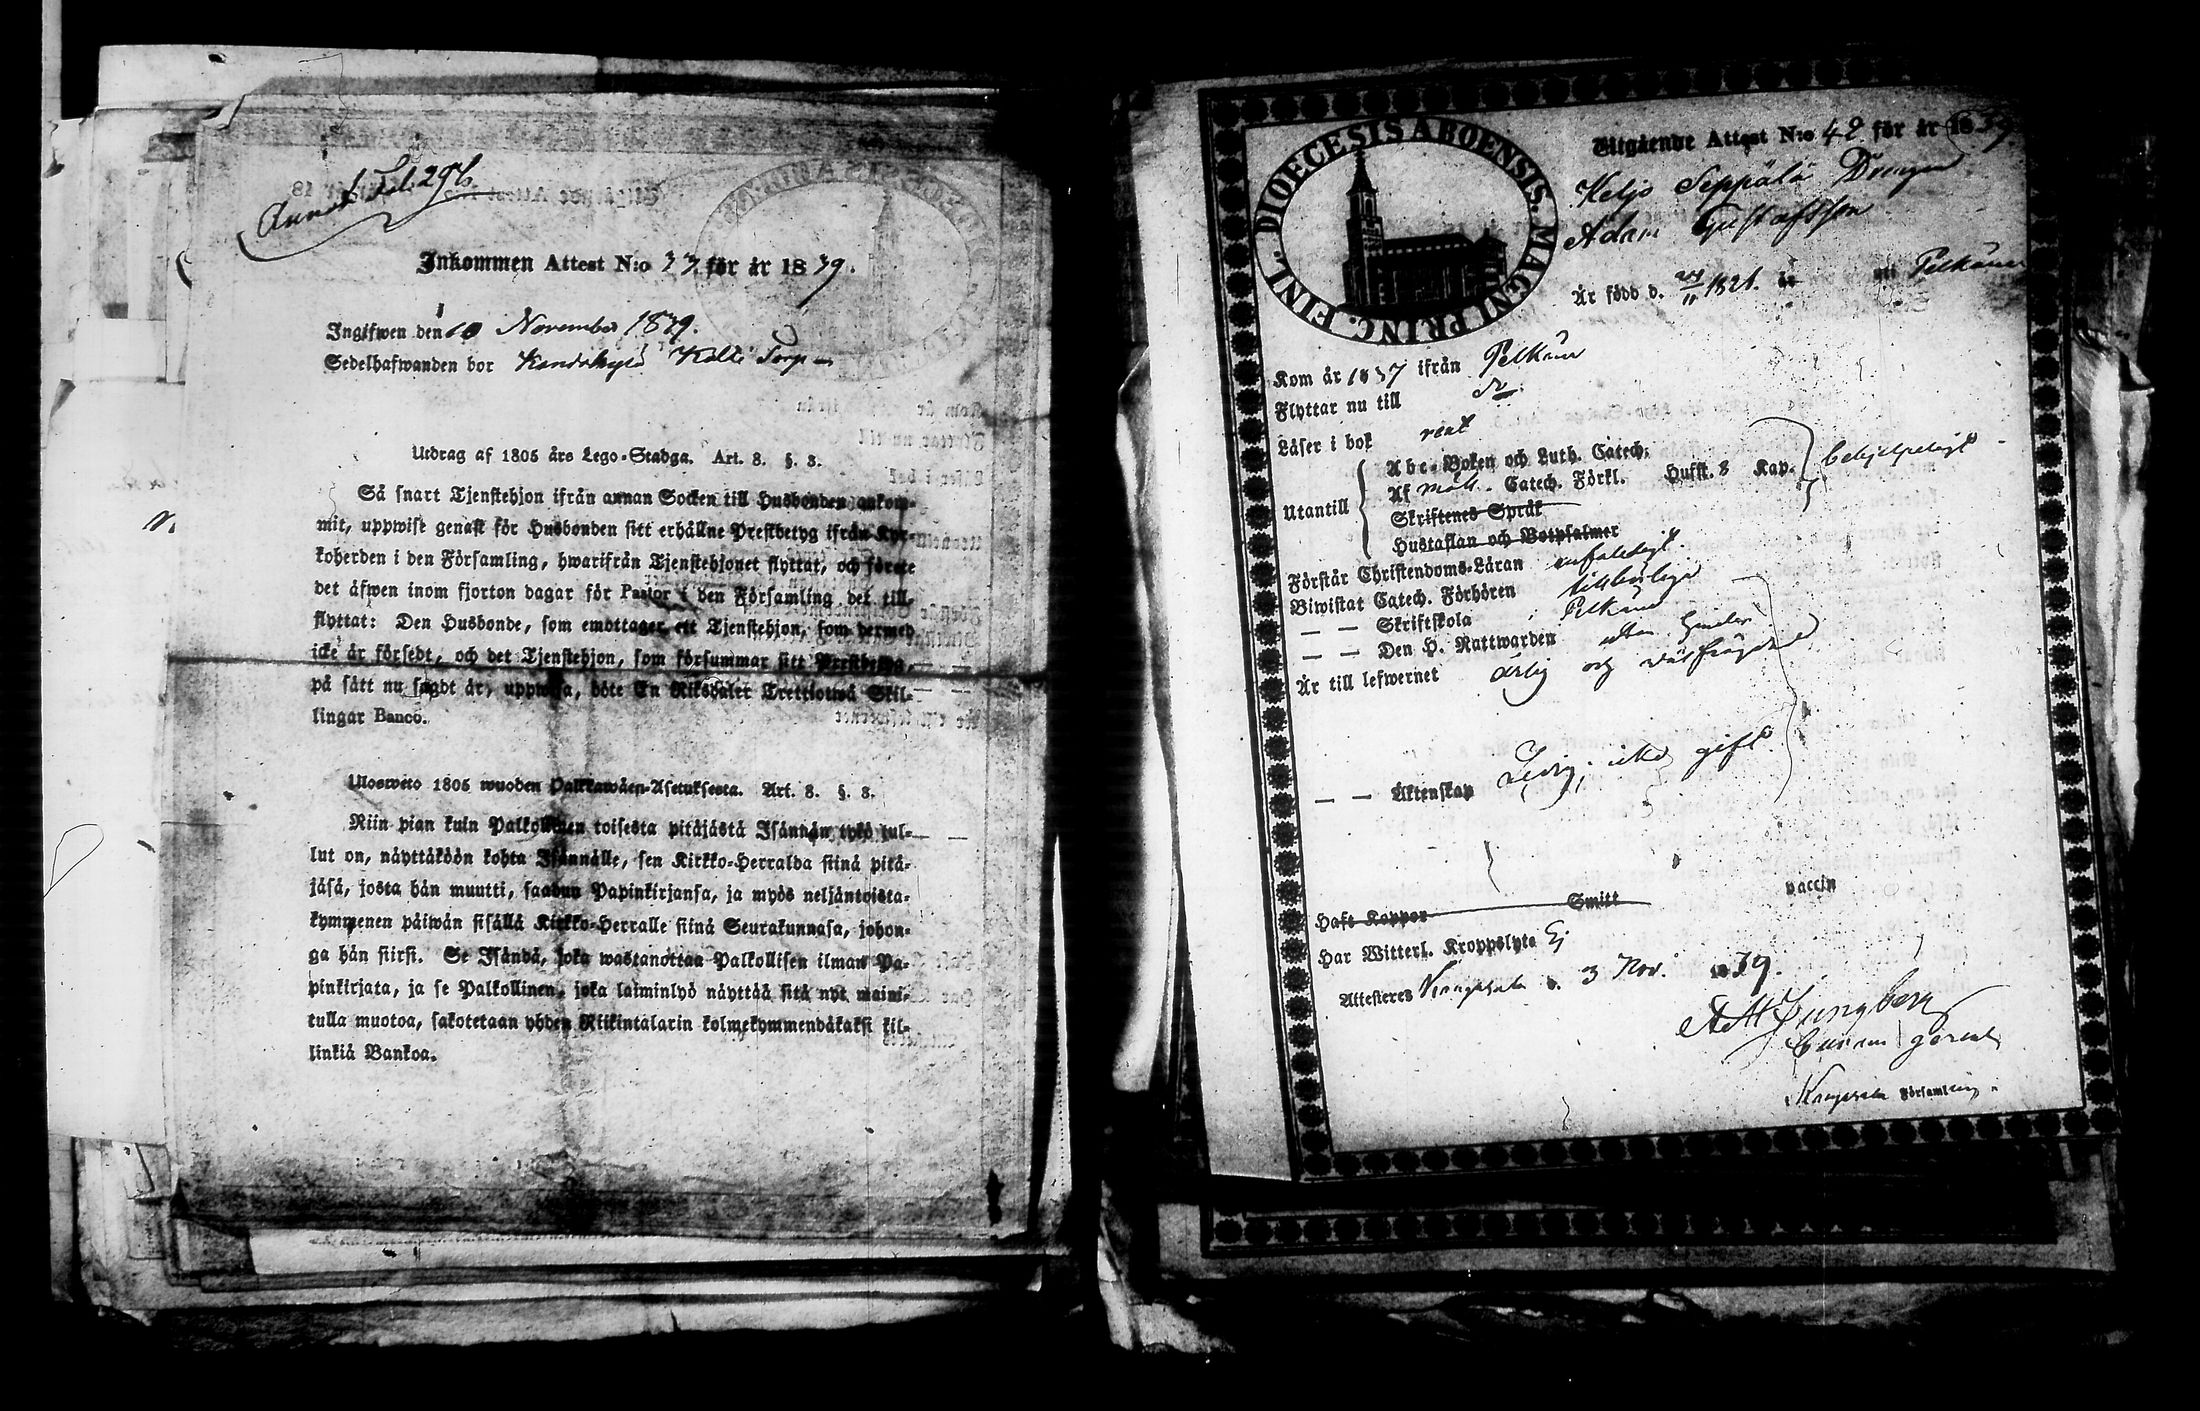 Annot. Fol. 296.
Inkommen Attest N:o 33 för år 1839.
Ingifwen den 10 November 1839.
Sedelhafwanden bor Torp
Utdrag af 1805 års Lego-Stadga. Art. 8. §. 3.
Så snart Tjenstehjon ifrån annan Socken till Husbonden ankom-
mit, uppwise genast för Husbonden sitt erhållne Prestbetyg ifrån Kyr-
koherden i den Församling, hwarifrån Tjenstehjonet flyttat, och förete
det äfwen inom fjorton dagar för Pastor i den Församling det till-
flyttat: Den Husbonde, som emottager ett Tjenstehjon, som dermed
icke är försedt, och det Tjenstehjon, som försummar sitt Prestbetyg,
på sätt nu sagdt är, uppwisa, böte En Riksdaler Trettiotwå Skil-
lingar Banco.
Ulosweto 1805 wuoden Palkkawäen-Asetuksesta. Art. 8. §. 3.
Niin pian kuin Palkollinen toisesta pitäjästä Isännän tykö tul-
lut on, näyttäköön kohta Isännälle, sen Kirkko-Herralda siinä pitä-
jäsä, josta hän muutti, saadun Papinkirjansa, ja myös neljäntoista-
kymmenen päiwän sisällä Kirkko-Herralle siinä Seurakunnasa, johon-
ga hän siirsi. Se Isändä, joka wastanottaa Palkollisen ilman Pa-
pinkirjata, ja se Palkollinen, joka laiminlyö näyttää sitä nyt maini-
tulla muotoa, sakotetaan yhden Riikintalarin kolmekymmendäkaksi kil-
linkiä Bankoa.
DIOECESIS ABOENSIS. MAGNI PRINC. FINL.
Utgående Attest N:o 42 för år 1839.
Keljo Seppälä Drengen
Adam Gustafsson
Är född d. 24/11 1821. uti Pelkäne
Kom år 1837 ifrån Pelkäne
Flyttar nu till do
Läser i bok rent
Utantill Abc-Boken och Luth. Catech.
Af Catech. Förkl. Husst. 8 Kap. behjelpeligt
Skriftenes Språk
Hustaflan och Botpsalmer
Förstår Christendoms-Läran enfaldeligt.
Biwistat Catech. Förhören
— — Skriftskola Pelkäne
— — Den H. Nattwarden utan hinder
Är till lefwernet ärlig och välfrägdad
— — Äktenskap Ledig, icke gift
Haft Koppor Smitt vaccin
Har Witterl. Kroppslyte Ej
Attesteres Kangasala d. 3 Nov. 1839.
Ljungberg
Kangasala Församling.